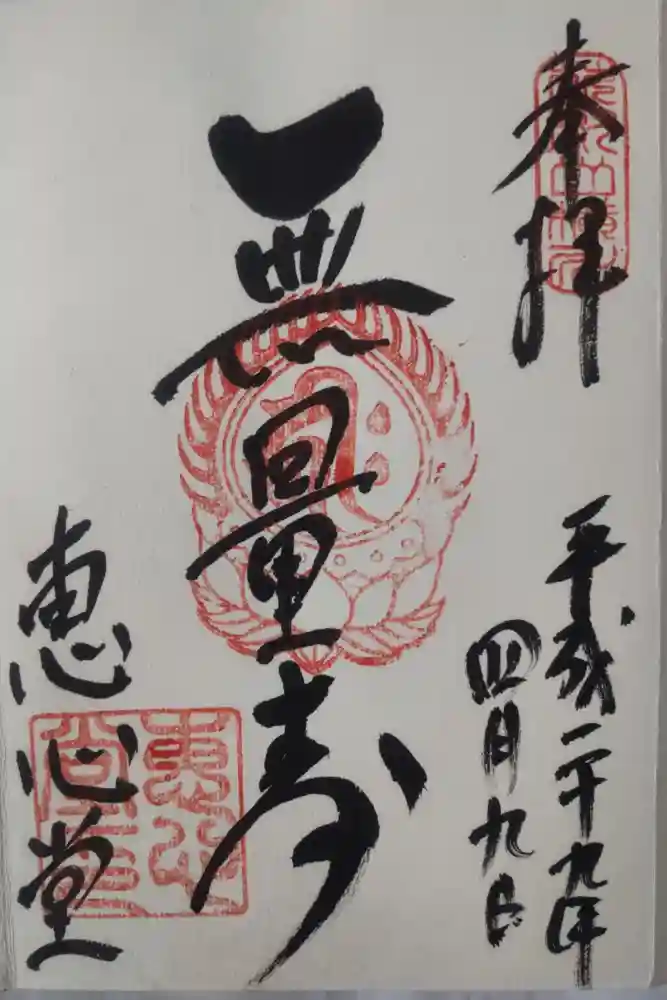 奉拝
平成二十九年
四月九日
無量寿
恵心堂
惠心堂